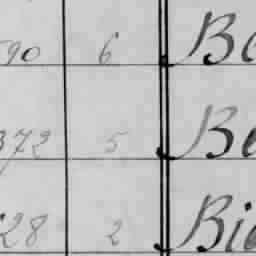 90 6 Be
372 5 Be
28 2 Bie